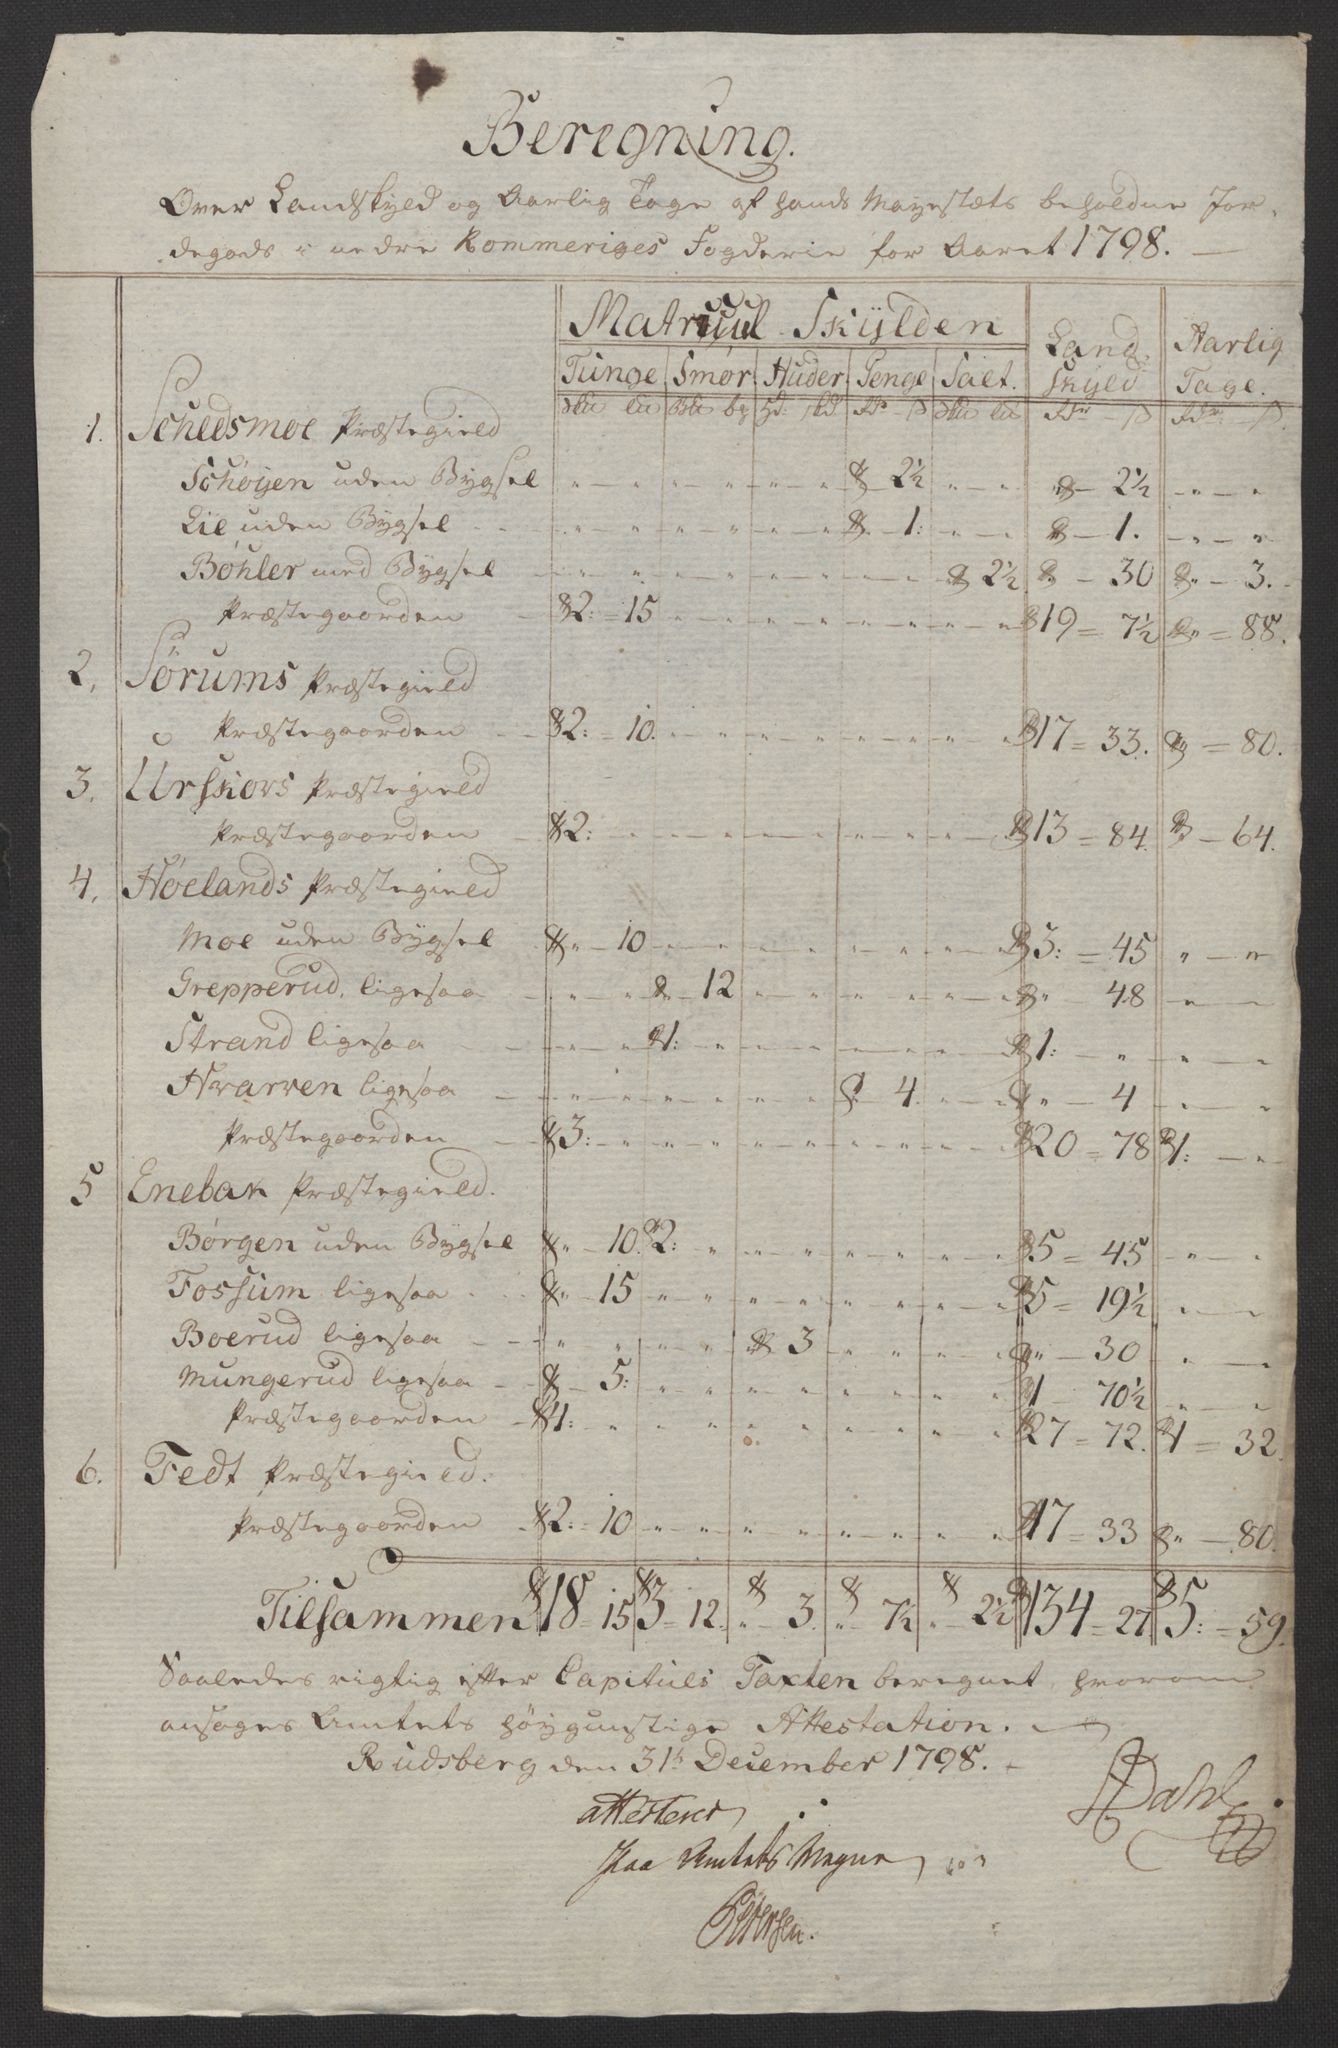 Beregning.
Over Landskyld og Aarlig Tage af hands Mayestæts beholdne Jor-
degods i nedre Rommeriges Fogderie for Aaret 1798. —
Matricul Skylden
Land-skyld Aarlig Tage.
Tunge Smør Huder Penge Salt.
1. Schedsmoe Præstegield
Schøyen uden Bygsel " " " " " " 2½ " " " — 2½ " — "
Lie uden Bygsel " " " " " " 1. " " " — 1. " — "
Bøhler med Bygsel " " " " " " " " " 2½ " — 30 " — 3.
Præstegaarden 2: = 15 " " " " " " " " 19 = 7½ " = 88.
2. Sørums Præstegield
Præstegaarden 2: = 10. " " " " " " " " 17 = 33. " = 80.
3. Urskors Præstegield
Præstegaarden 2: " " " " " " " " " 13 = 84. " — 64.
4. Høelands Præstegield
Moe uden Bygsel " — 10 " " " " " " " " 3: = 45 " — "
Grepperud, ligesaa " " " — 12 " " " " " " " — 48 " — "
Strand ligesaa " " 1: " " " " " " " 1: " " — "
Hvarven ligesaa " " " " " " " 4. " " " — 4 " — "
Præstegaarden 3: " " " " " " " " " 20 = 78 1: — "
5 Enebak Præstegield.
Børgen uden Bygsel " — 10. 2: " " " " " " " 5 = 45 " — "
Fossum ligesaa " — 15 " " " " " " " " 5 = 19½ " — "
Boerud ligesaa " " " " " 3 " " " " " — 30 " — "
Mungerud ligesaa " — 5: " " " " " " " " 1 — 70½ " — "
Præstegaarden 4: " " " " " " " " " 27 = 72. 1 = 32
6. Fedt Præstegield.
Præstegaarden 2: = 10 " " " " " " " " 17 = 33 " — 80.
Tilsammen 18 = 15 3 = 12. " — 3. " — 7½ " — 2½ 134 = 27. 5: = 59.
Saaledes rigtig efter Capituls Taxten beregnet, hvorom
ansøges Amtets høygunstige Attestation. —
Rudsberg den 31t December 1798. —
attesterer
Paa Amtets Vegne
Dahl
Petersen.